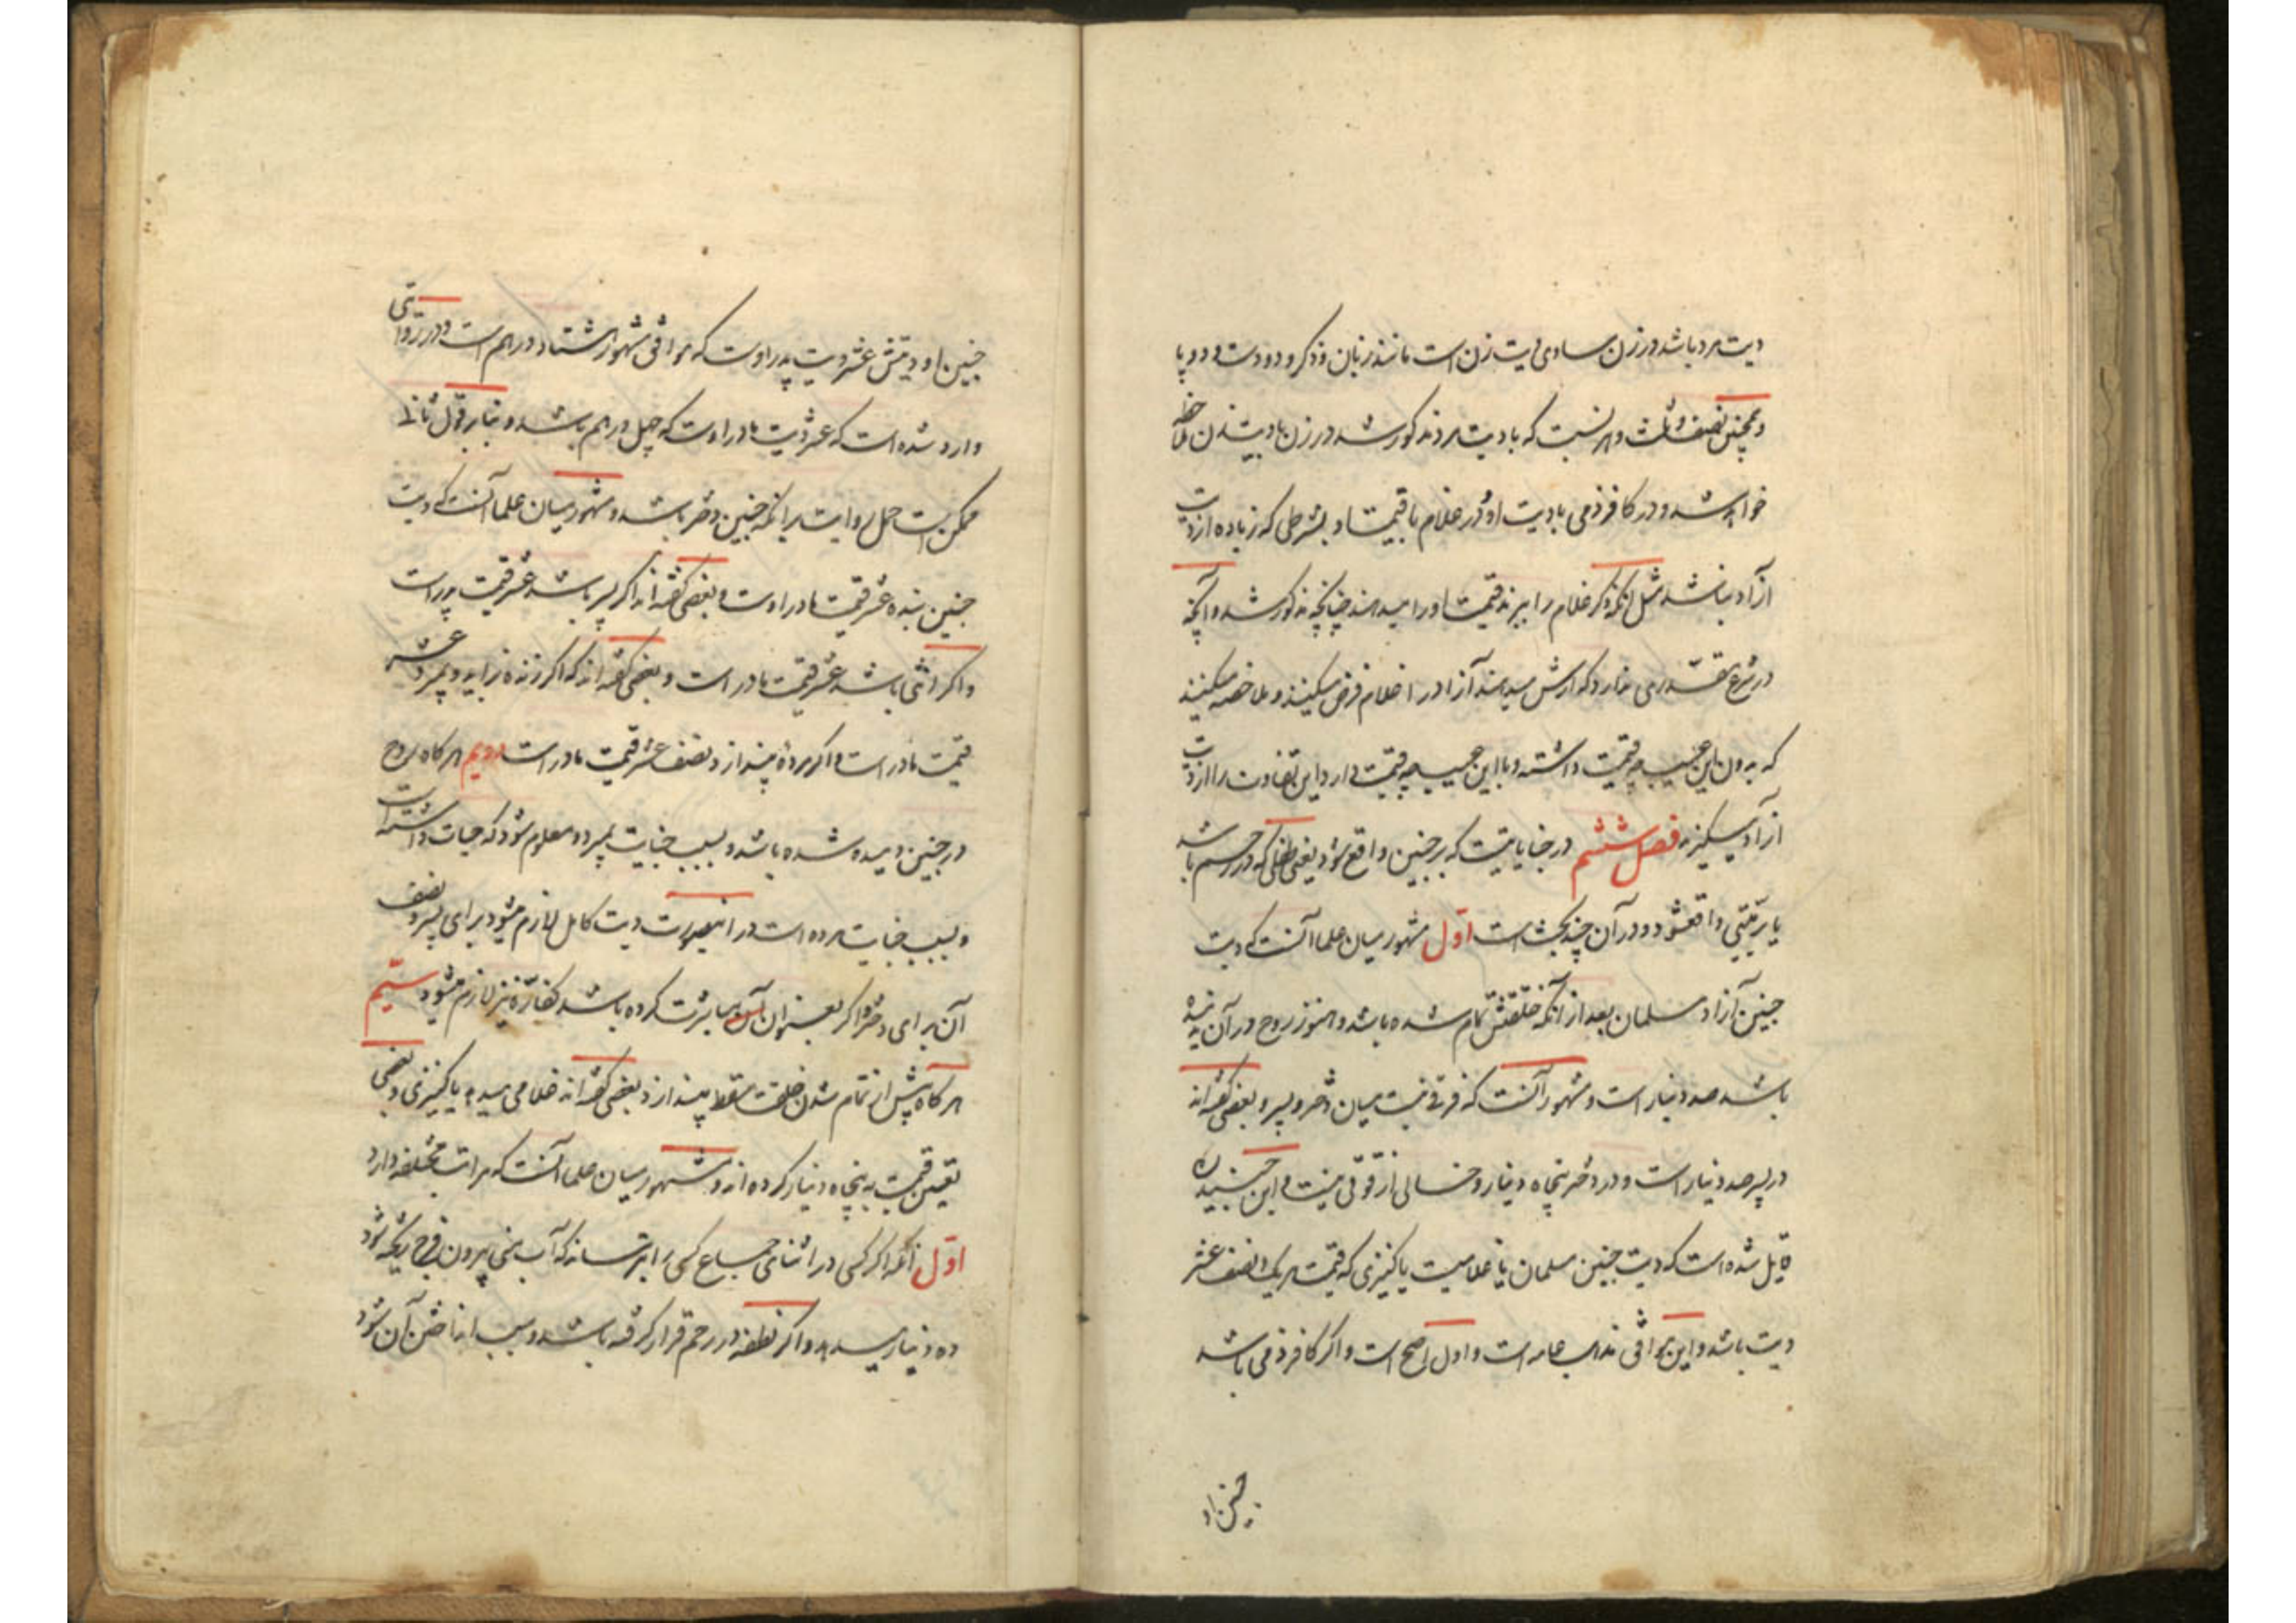 دیت مرد باشد در زن مساوی دیت زن است مانند زبان و ذکر و دو دست و دو پا
و همچنین نصف و ثلث و هر نسبت که با دیت مرد مذکور شد در زن با دیت زن ملاحظه
خواهد شد و در کافر ذمی با دیت او و در غلام با قیمت او بشرطی که زیاده از دیت
آزاد نباشد مثل آنکه ذکر غلام را ببرند قیمت او را میدهند چنانچه مذکور شد و آنچه
در شرع مقدری ندارد که ارش میدهند آزاد را غلام فرض میکنند و ملاحظه میکنند
که بدون این عیب چه قیمت داشته و با این عیب چه قیمت دارد این تفاوت را از دیت
آزاد میگیرند فصل ششم در جنایاتیست که بر جنین واقع شود یعنی طفلی که در رحم باشد
یا بر میتی واقع شود و در آن چند بحث است اول مشهور میان علما آنست که دیت
جنین آزاد مسلمان بعد از آنکه خلقتش تمام شده باشد و هنوز روح در آن ندمیده
باشد صد دینار است و مشهور آنست که فرقی نیست میان دختر و پسر و بعضی گفته‌اند
در پسر صد دینار است و در دختر پنجاه دینار و خالی از قوتی نیست و ابن جنید
قایل شده است که دیت جنین مسلمان یا غلامیست یا کنیزی که قیمت هر یک نصف عشر
دیت باشد و این موافق مذهب عامه است و اول اصح است و اگر کافر ذمی باشد
جنین او
جنین او دیتش عشر دیت پدر اوست که موافق مشهور هشتاد درهم است و در روایتی
وارد شده است که عشر دیت مادر اوست که چهل درهم باشد و بنابر قول ثانی
ممکن است حمل روایت بر آنکه جنین دختر باشد و مشهور میان علما آنست که دیت
جنین بنده عشر قیمت مادر اوست و بعضی گفته‌اند اگر پسر باشد عشر قیمت پدر است
و اگر انثی باشد عشر قیمت مادر است و بعضی گفته‌اند که اگر زنده بزاید و بمیرد عشر
قیمت مادر است و اگر مرده بیندازد نصف عشر قیمت مادر است دویم هرگاه روح
در جنین دمیده شده باشد و بسبب جنایت بمیرد و معلوم شود که حیات داشته است
و بسبب جنایت مرده است در اینصورت دیت کامل لازم میشود برای پسر و نصف
آن برای دختر و اگر بعنوان مباشرت کرده باشد کفاره نیز لازم میشود سیم
هرگاه پیش از تمام شدن خلقت سقط بیندازد بعضی گفته‌اند غلامی میدهد یا کنیزی و بعضی
تعیین قیمت به پنجاه دینار کرده‌اند و مشهور میان علما آنست که مراتب مختلفه دارد
اول آنکه اگر کسی در اثنای جماع کسی را بترساند که آب منی بیرون فرج ریخته شود
ده دینار میدهد و اگر نطفه در رحم قرار گرفته باشد و سبب انداختن آن شود